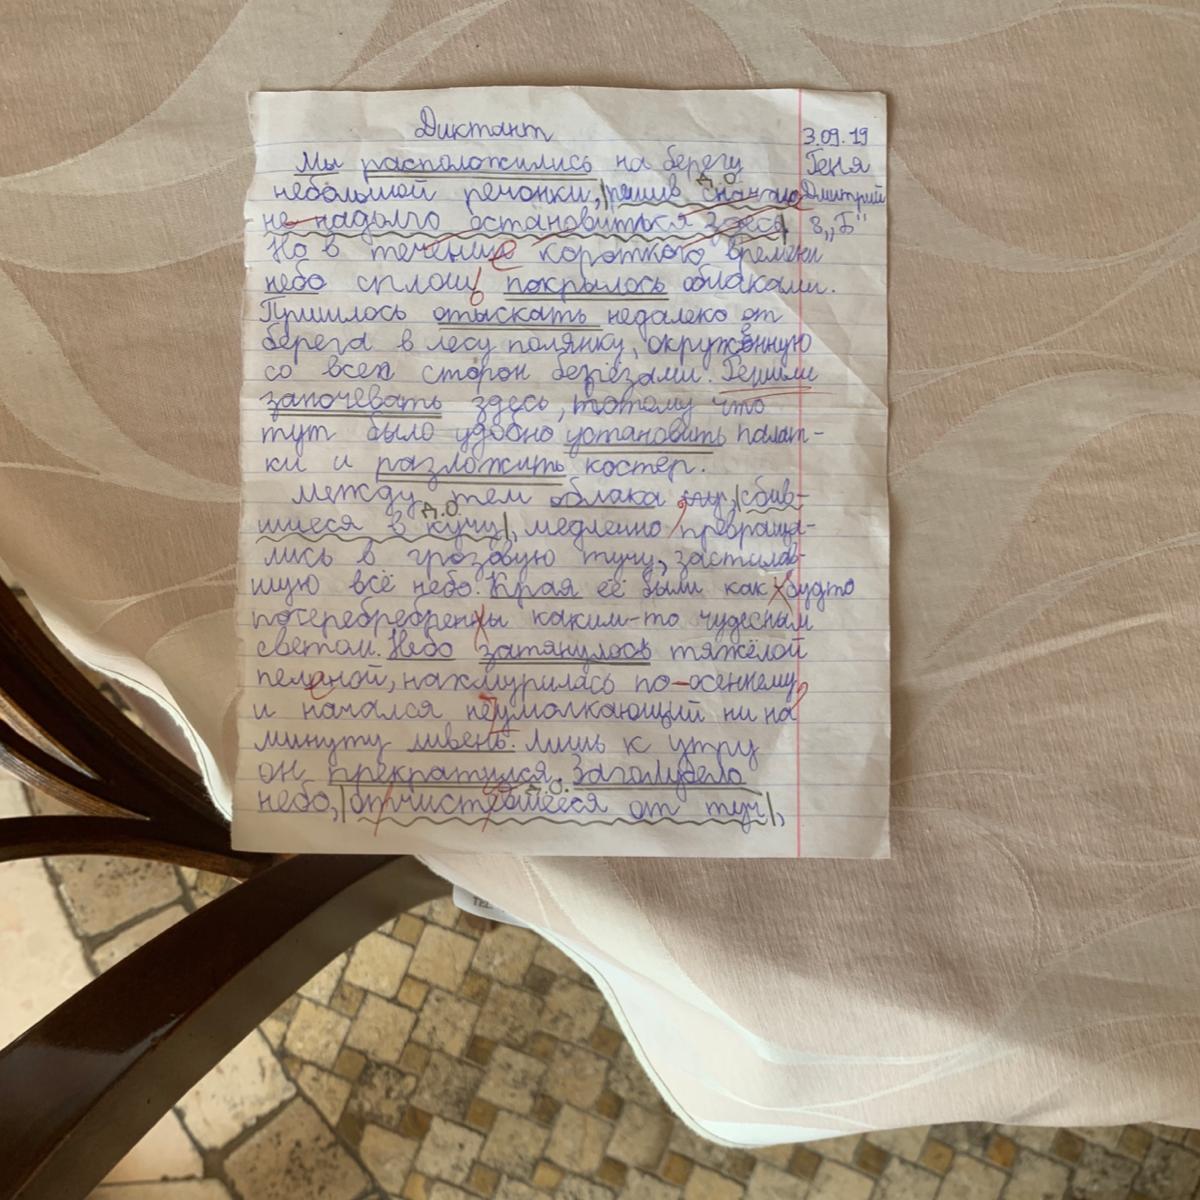 Диктант
3.09.19
Геня
Дмитрий
8 „Б"
Мы расположились на берегу
небольшой речонки, решив сначала
не надолго остановиться здесь.
Но в течение короткого времени
небо сплошь покрылось облаками.
Пришлось отыскать недалеко от
берега в лесу полянку, окружённую
со всех сторон берёзами. Решили
заночевать здесь, потому что
тут было удобно установить палат-
ки и разложить костёр.
Между тем облака, сбив-
шиеся в кучу, медленно превраща-
лись в грозовую тучу, застилав-
шую всё небо. Края её были как будто
посеребребренны каким-то чудесным
светом. Небо затянулось тяжёлой
пеленой, нахмурилась по-осеннему,
и начался неумолкающий ни на
минуту ливень. Лишь к утру
он прекратился. Заголубело
небо, отчистевшееся от туч,
д.о.
д.о.
д.о.
TEL